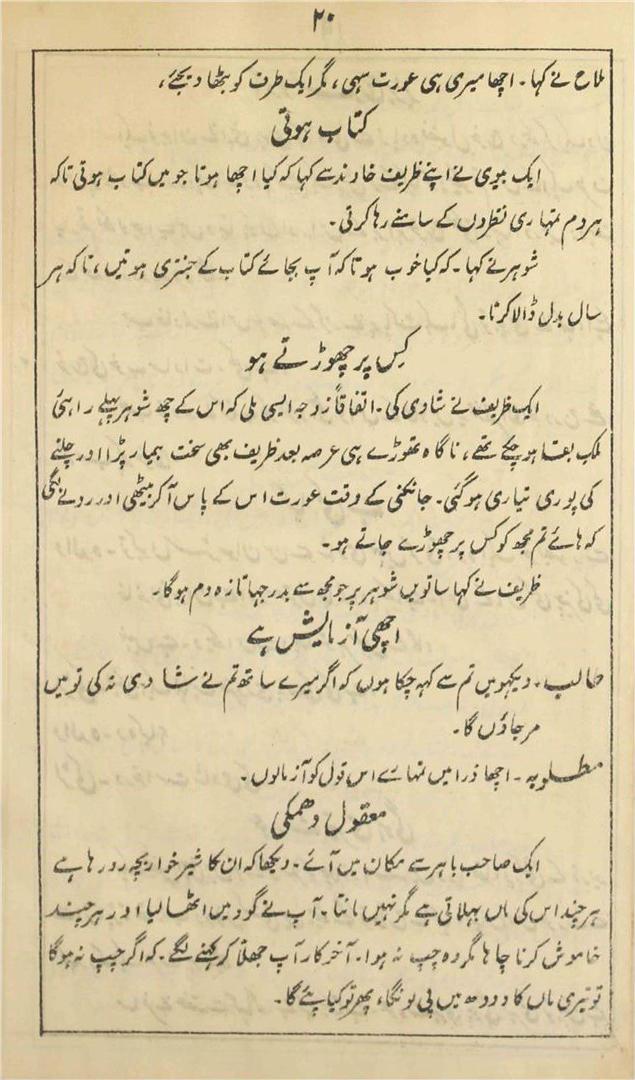 ۲۰
ملاح نے کہا۔ اچھا میری ہی عورت سہی، مگر ایک طرف کو بٹھا دیجئے،
کتاب ہوتی
ایک بیوی نے اپنے ظریف خاوند سے کہا کہ کیا اچھا ہوتا جو میں کتاب ہوتی تاکہ
ہر دم تمہاری نظروں کے سامنے رہا کرتی۔
شوہر نے کہا۔ کہ کیا خوب ہوتا کہ آپ بجائے کتاب کے جنتری ہوتیں، تاکہ ہر
سال بدل ڈالا کرتا۔
کس پر چھوڑتے ہو
ایک ظریف نے شادی کی۔ اتفاقاً زوجہ ایسی ملی کہ اس کے چھ شوہر پہلے راہئی
ملک بقا ہو چکے تھے، ناگاہ تھوڑے ہی عرصہ بعد ظریف بھی سخت بیمار پڑا اور چلنے
کی پوری تیاری ہو گئی۔ جانکنی کے وقت عورت اس کے پاس آ کر بیٹھی اور رونے لگی
کہ ہائے تم مجھ کو کس پر چھوڑے جاتے ہو۔
ظریف نے کہا ساتویں شوہر پر جو مجھ سے بدرجہا تازہ دم ہوگا۔
اچھی آزمایش ہے
طالب۔ دیکھو میں تم سے کہہ چکا ہوں کہ اگر میرے ساتھ تم نے شادی نہ کی تو میں
مر جاؤں گا۔
مطلوبہ۔ اچھا ذرا میں تمہارے اس قول کو آزما لوں۔
معقول دھمکی
ایک صاحب باہر سے مکان میں آئے۔ دیکھا کہ ان کا شیر خوار بچہ رو رہا ہے
ہر چند اس کی ماں بہلاتی ہے مگر نہیں مانتا۔ آپ نے گود میں اٹھا لیا اور ہر چند
خاموش کرنا چاہا مگر وہ چپ نہ ہوا۔ آخر کار آپ جھلا کر کہنے لگے۔ کہ اگر چپ نہ ہوگا
تو تیری ماں کا دودھ میں پی لونگا، پھر تو کیا پئے گا۔